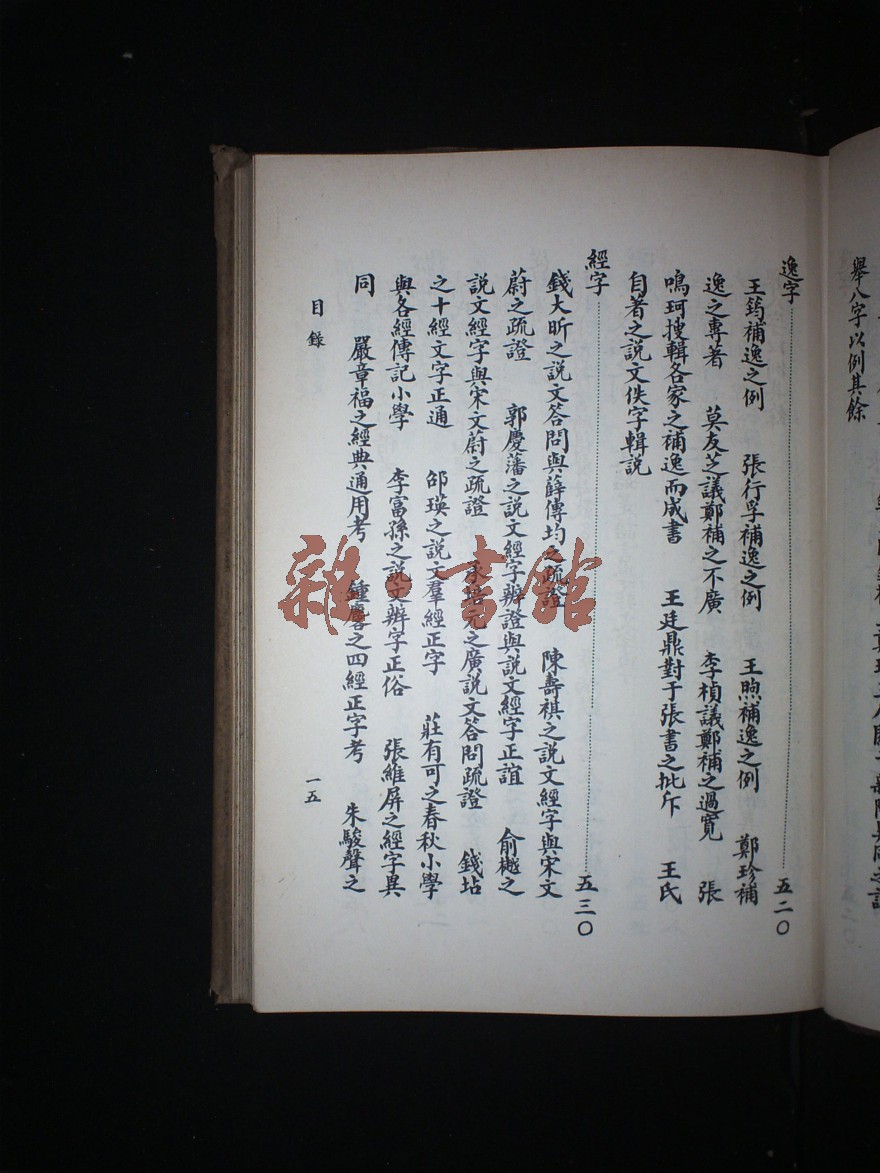 舉八字以例其餘
逸字……五二〇
王筠補逸之例　張行孚補逸之例　王煦補逸之例　鄭珍補
逸之專著　莫友芝議鄭補之不廣　李楨議鄭補之過寬　張
鳴珂搜輯各家之補逸而成書　王廷鼎對于張書之批斥　王氏
自著之說文佚字輯說
經字……五三〇
錢大昕之說文答問與薛傳均之疏證　陳壽祺之說文經字與宋文
蔚之疏證　郭慶藩之說文經字辨證與說文經字正誼　俞樾之
說文經字與宋文蔚之疏證　承培元之廣說文答問疏證　錢坫
之十經文字正通　邵瑛之說文羣經正字　莊有可之春秋小學
與各經傳記小學　李富孫之說文辨字正俗　張維屏之經字異
同　嚴章福之經典通用考　鍾麐之四經正字考　朱駿聲之
目錄
一五
雜·書館